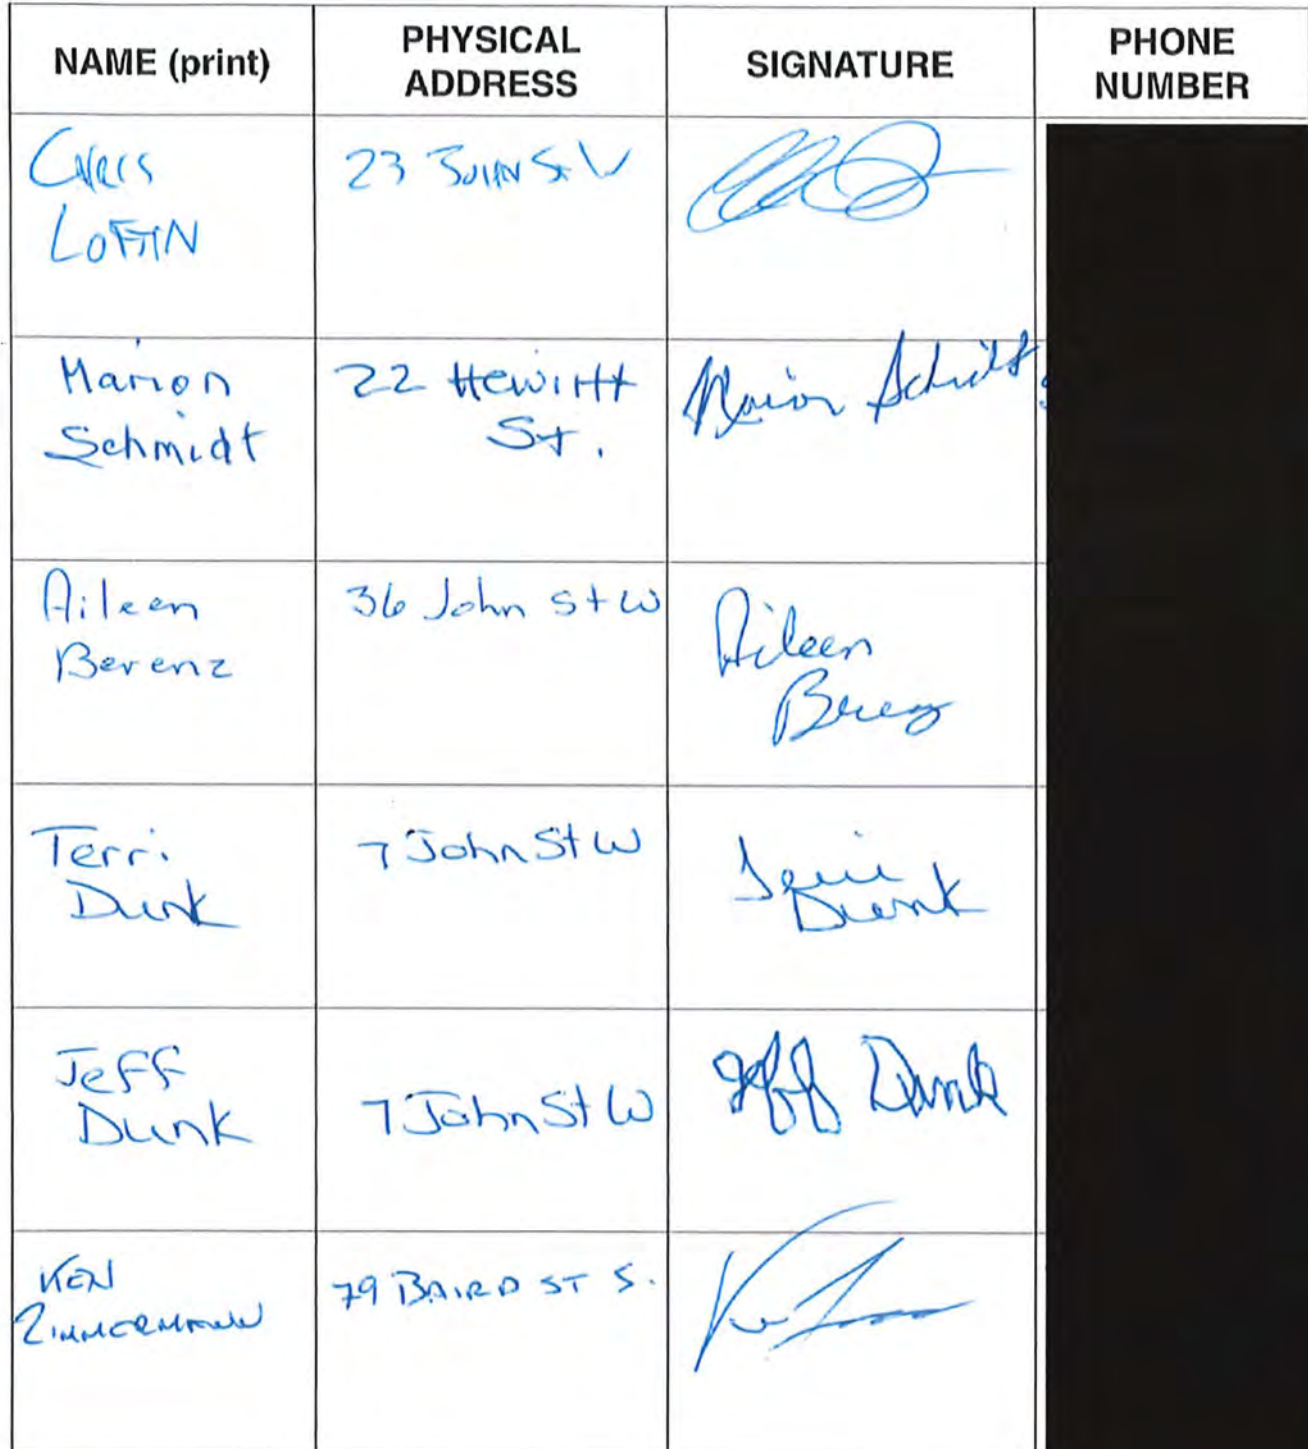 NAME (print)
PHYSICAL
ADDRESS
SIGNATURE
PHONE
NUMBER
CHRIS
LOFTIN
23 JOHN St. W
Marion
Schmidt
22 Hewitt
St.
Marion Schmidt
Aileen
Berenz
36 John St W
Aileen
Berenz
Terri
Dunk
7 John St W
Terri
Dunk
Jeff
Dunk
7 John St W
Jeff Dunk
KEN
ZIMMERMANN
79 BAIRD ST S.